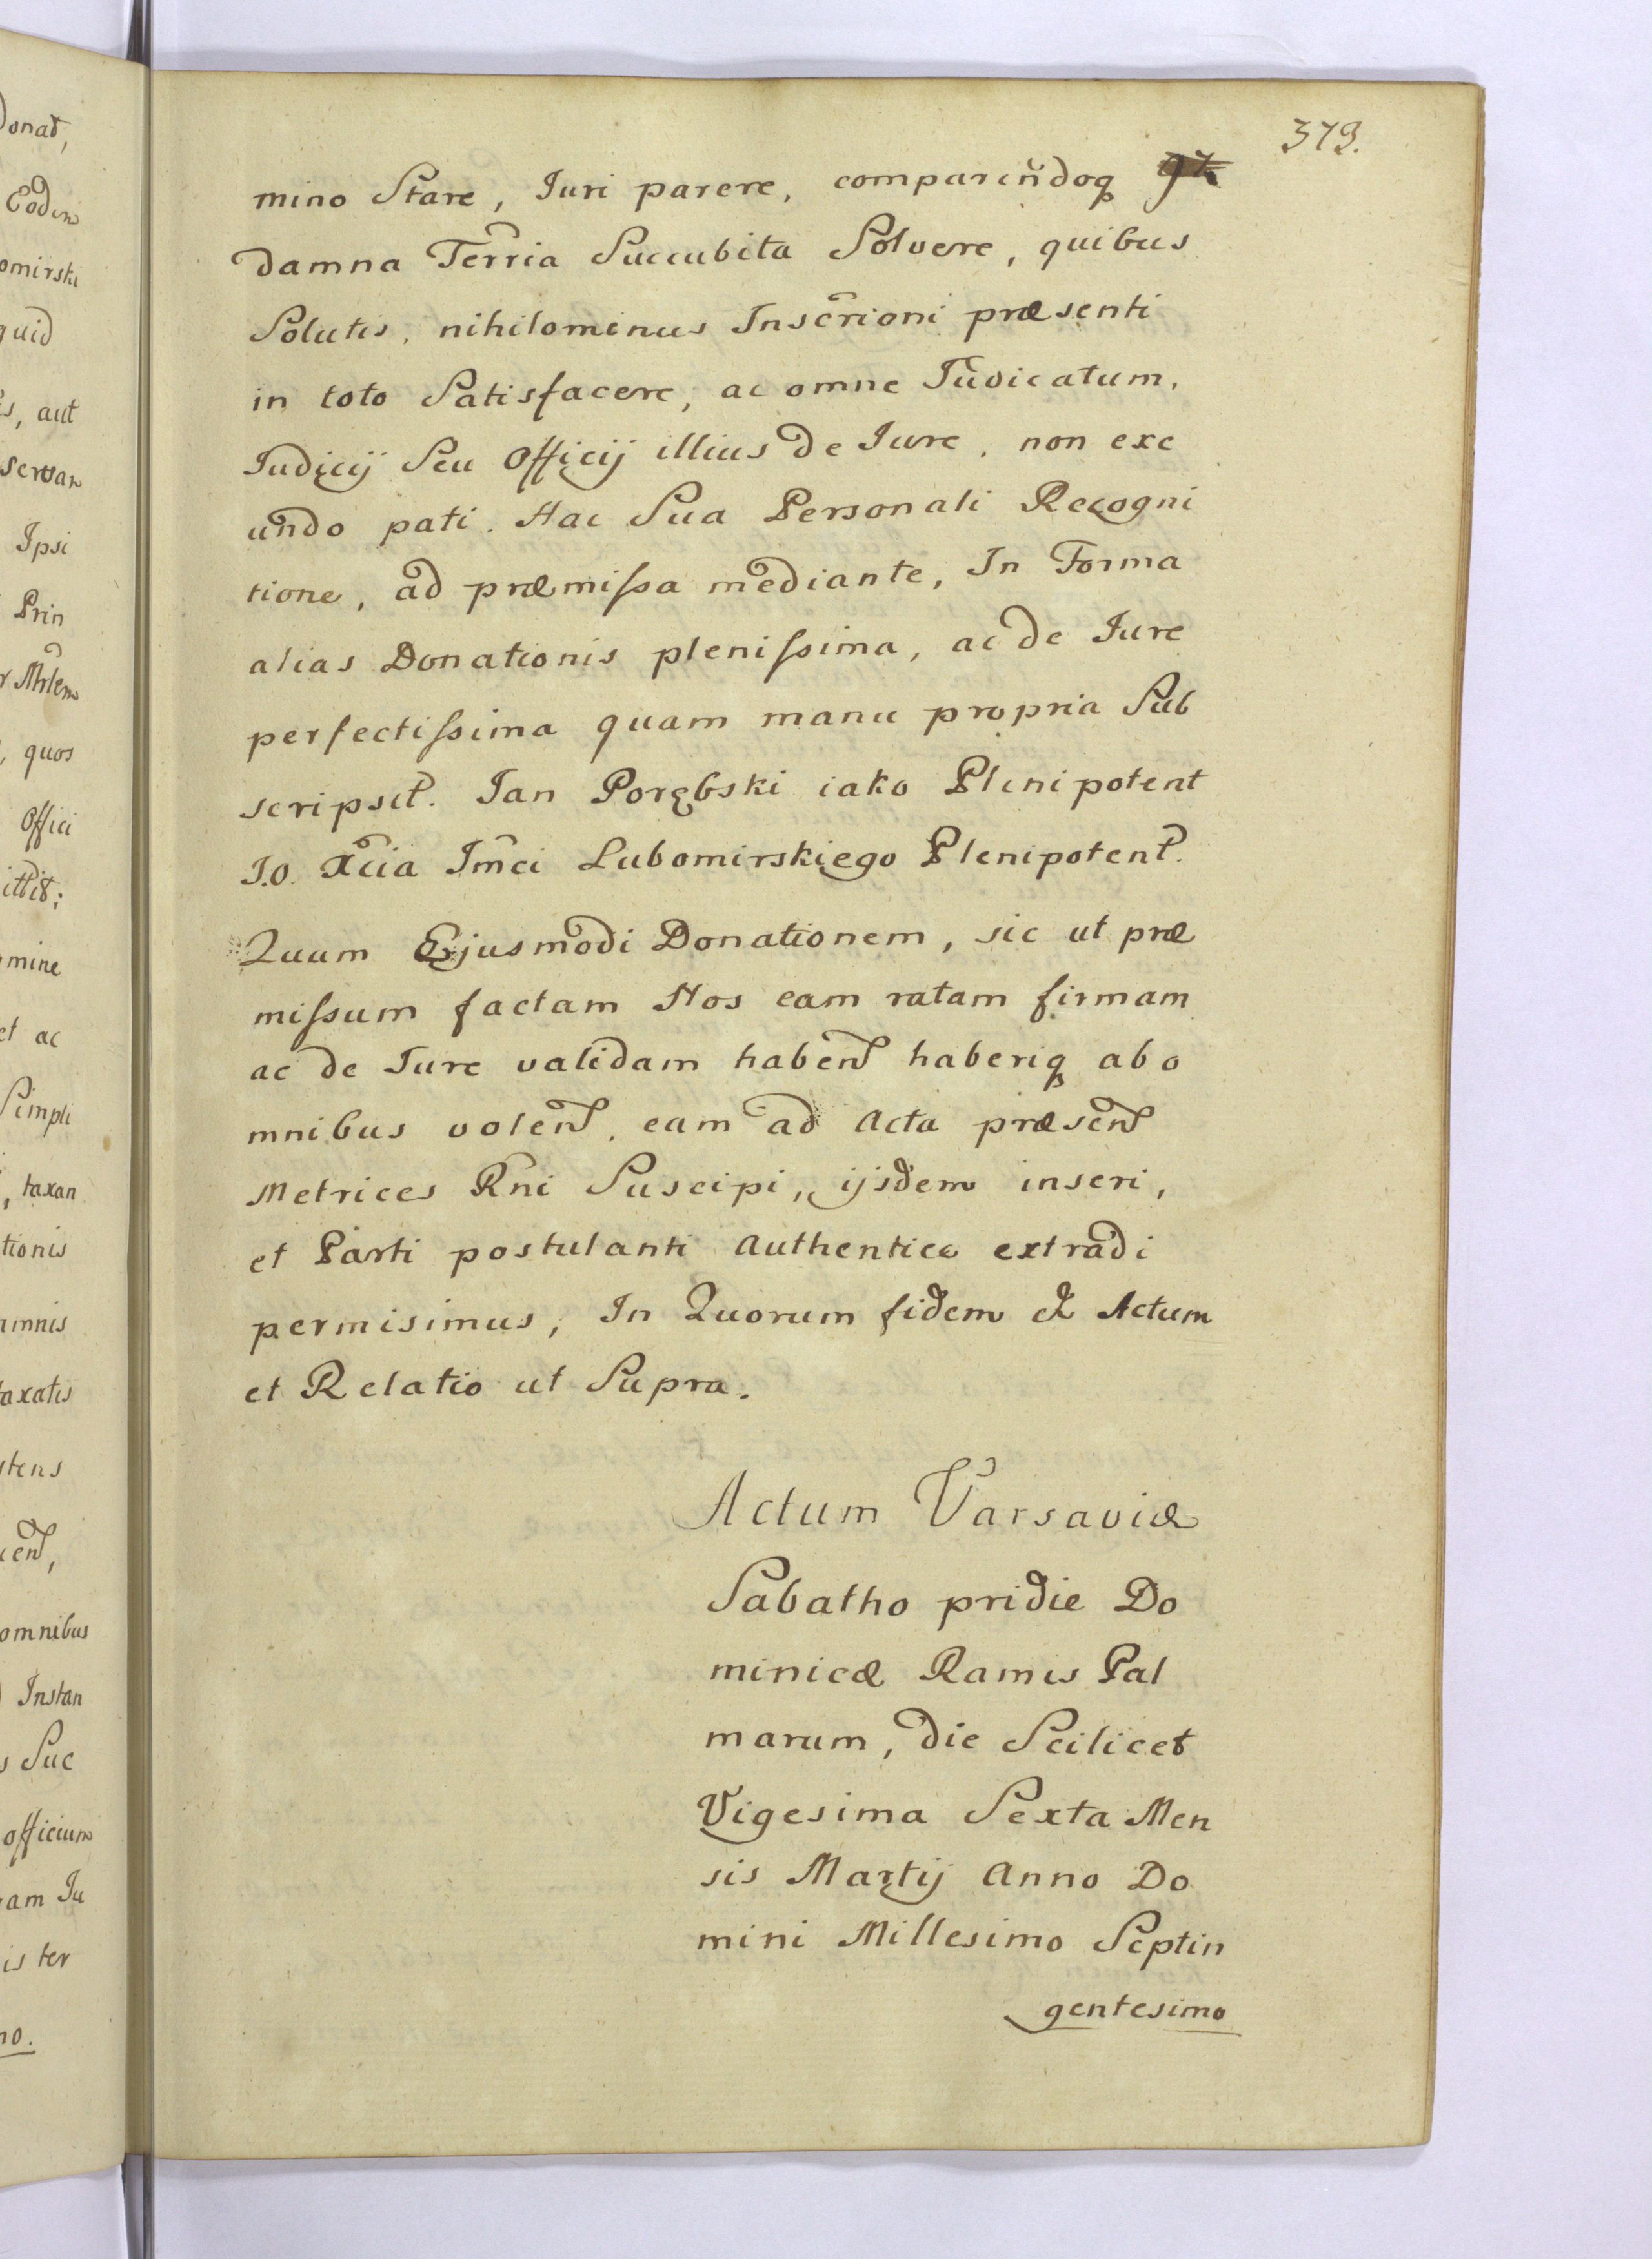 379.
mino Stare, Iuri parere, comparendoq
damna Terria Succubita Solvere, quibus
Solutis, nihilominus Inscrioni præsenti
in toto Satisfacere, ac omne Iudicatum,
Iudicij Seu Officij illius de Iure, non exe
undo pati. Hac Sua Personali Recogni
tione, ad præmissa mediante, In Forma
alias Donationis plenissima, ac de Iure
perfectissima quam manu propria Sub
scripsit. Ian Porębski iako Plenipotent
J.O. Xcia Jmci Lubomirskiego Plenipotent.
Quam Ejusmodi Donationem, sic ut præ
missum factam Nos eam ratam firmam
ac de Iure validam haben haberiq ab o
mnibus volen, eam ad Acta præsen
Metrices Rni Suscipi, ijsdem inseri,
et Parti postulanti Authentice extradi
permisimus, In Quorum fidem et Actum
et Relatio ut Supra.
Actum Varsaviæ
Sabatho pridie Do
minicæ Ramis Pal
marum, die Scilicet
Vigesima Sexta Men
sis Martij Anno Do
mini Millesimo Septin
gentesimo